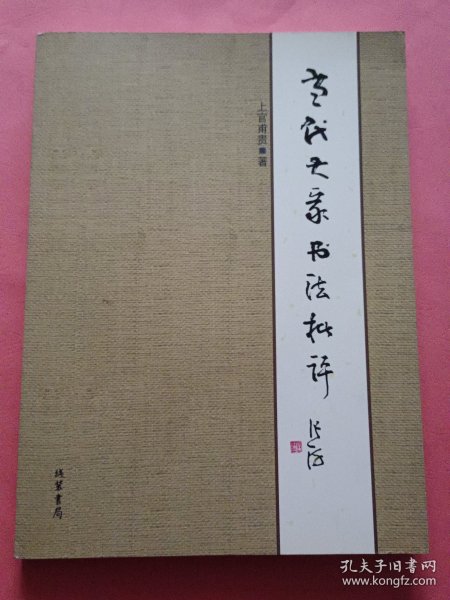 当代大家书法批评
张海
上官甫贵■著
线装书局
孔夫子旧书网
www.kongfz.com